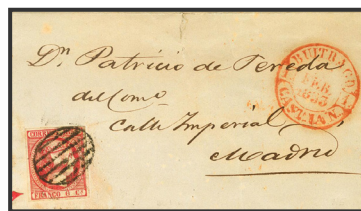 Dn Patricio de Pereda
del Como
Calle Imperial
Madrid
BUITRAGO
FEB.
1853
CAST. LA N.
FRANCO 6 Cs